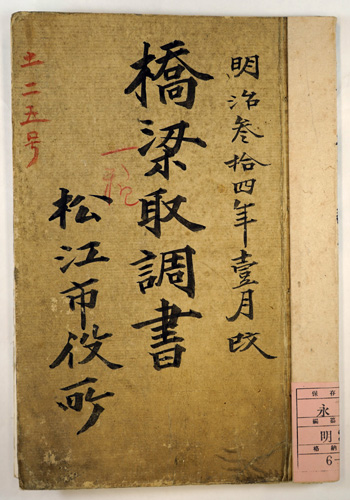 明治参拾四年壹月改
橋梁取調書
松江市役所
土二五号
保存
永
編纂
明
格納
6